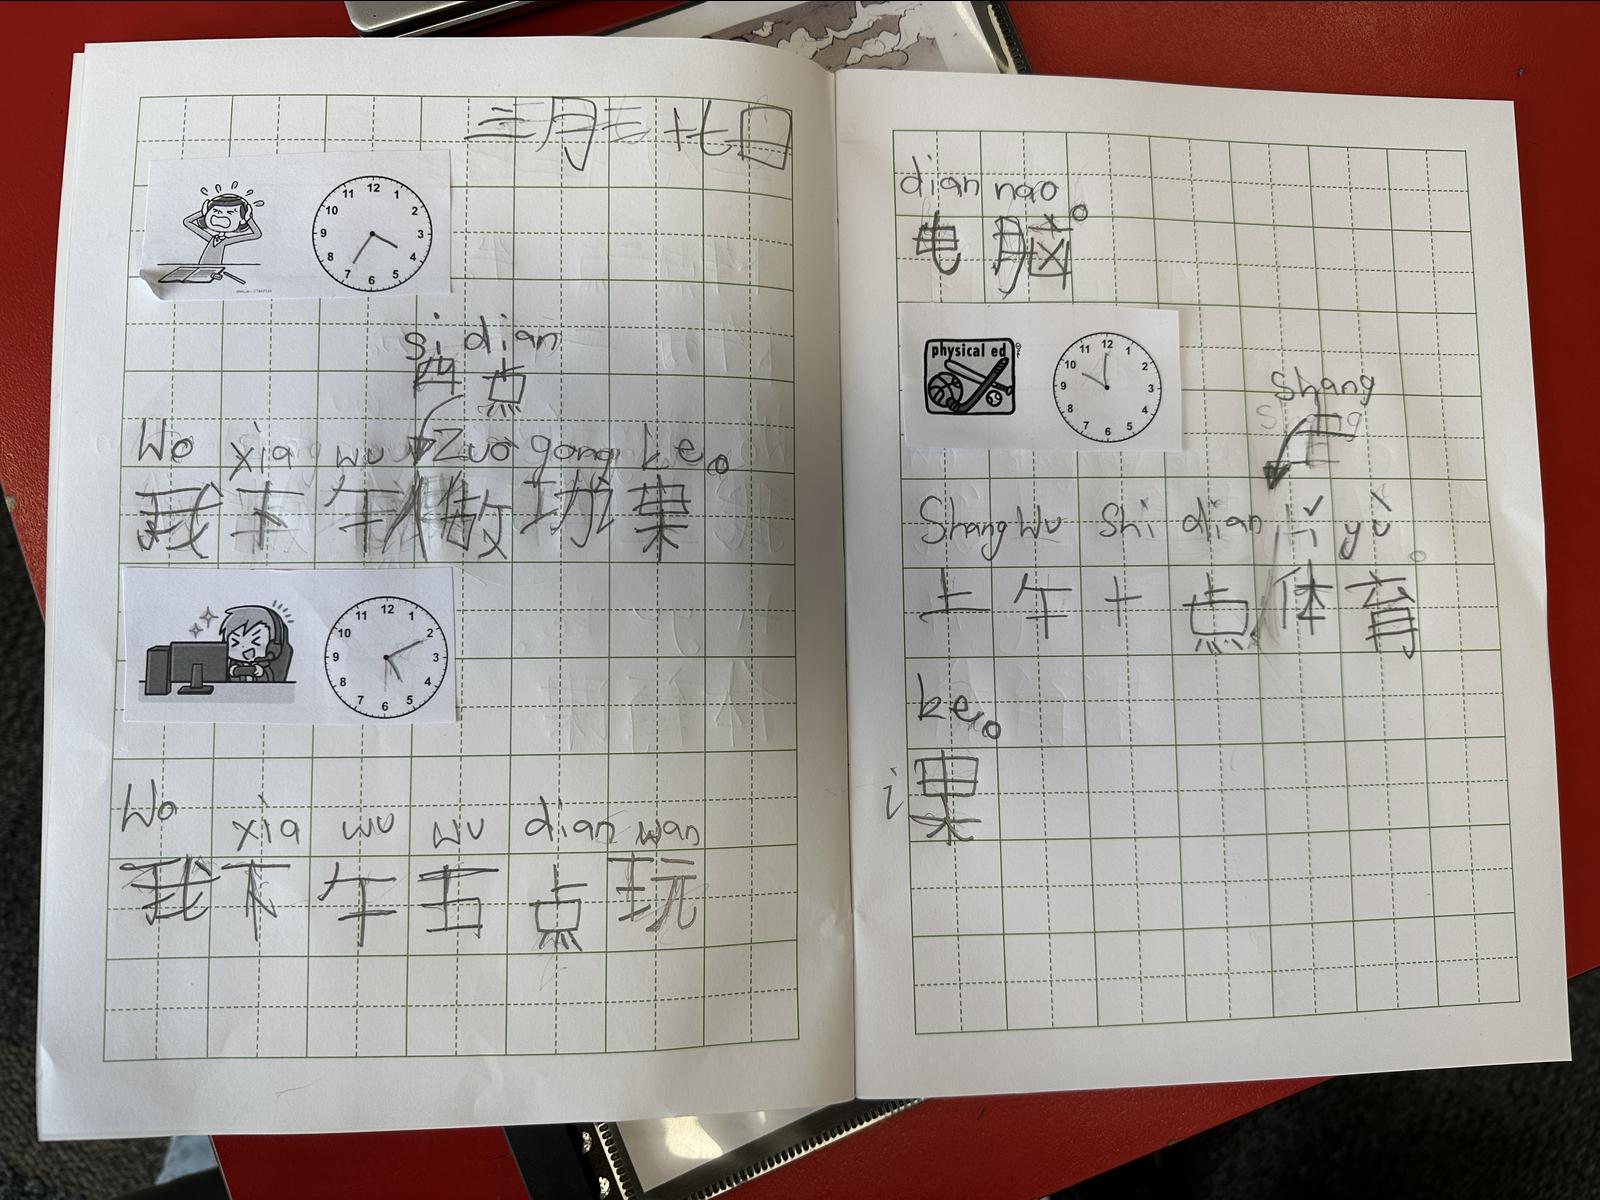 三月二十七日
12 1 2 3 4 5 6 7 8 9 10 11
si dian
四 点
Wo xia wu zuo gong ke。
我 下 午 做 功 课
12 1 2 3 4 5 6 7 8 9 10 11
Wo xia wu wu dian wan
我 下 午 五 点 玩
dian nao
电 脑。
physical ed
12 1 2 3 4 5 6 7 8 9 10 11
shang
上
Shang wu shi dian tǐ yù
上 午 十 点 体 育。
ke。
课